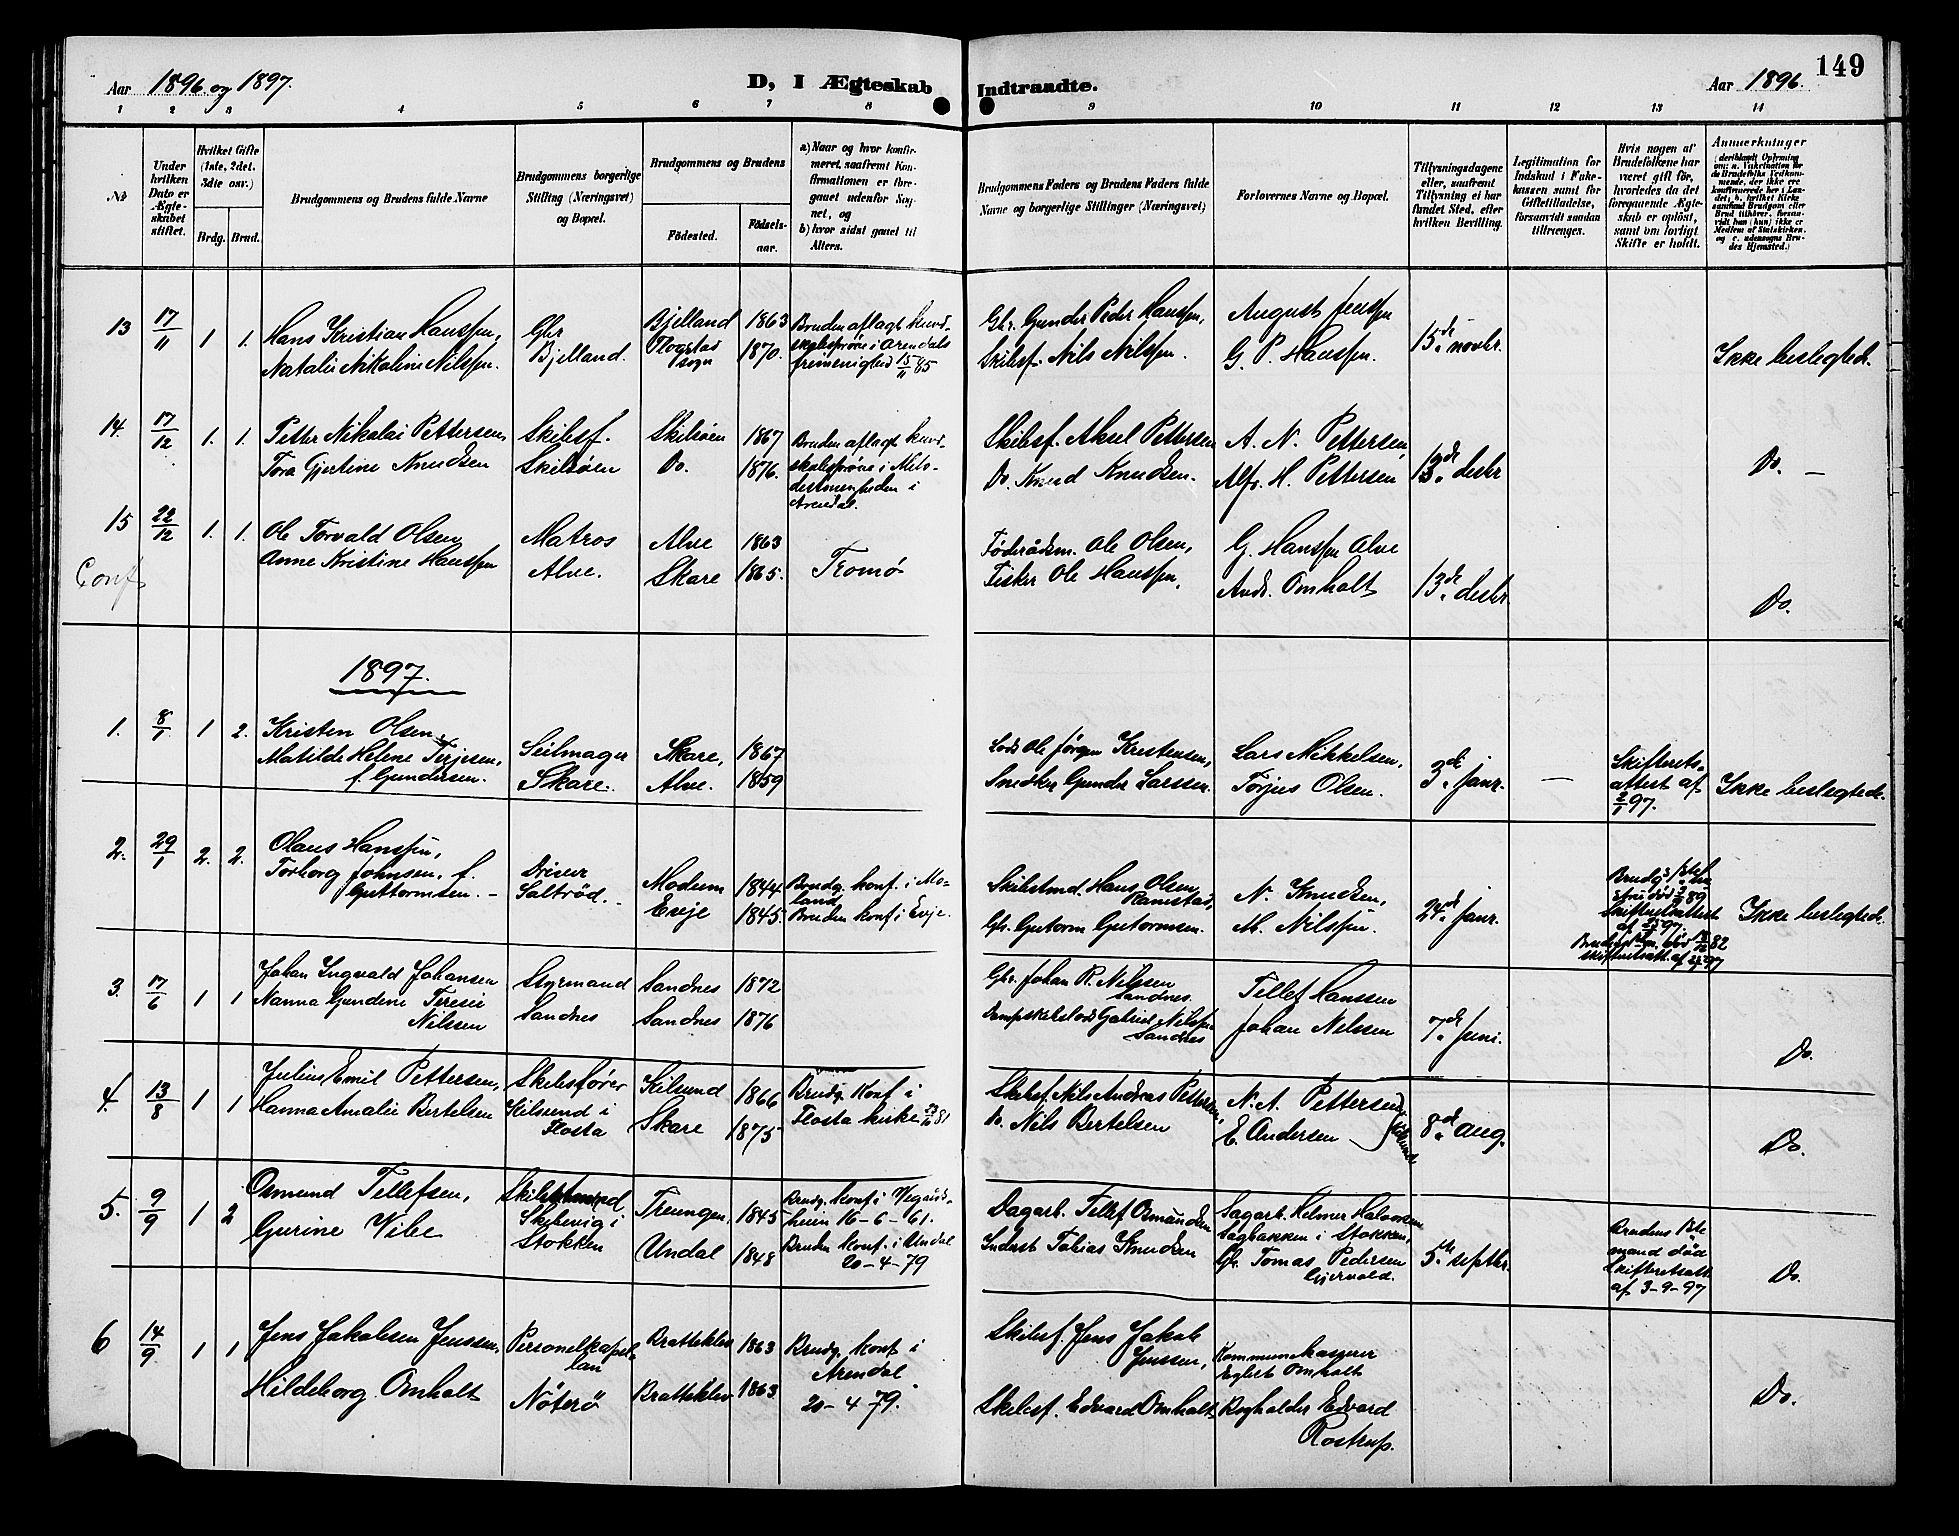 Aar 1896 og 1897.
D, I Ægteskab
Indtraadte.
Aar 1896.
149
1 2 3 4 5 6 7 8 9 10 11 12 13 14
No
Under hvilken Dato er Ægteskabet stiftet.
Hvilket Gifte (1ste, 2det, 3die osv.)
Brdg. Brud.
Brudgommens og Brudens fulde Navne
Brudgommens borgerlige Stilling (Næringsvei) og Bopæl.
Brudgommens og Brudens
Födested.
Födselsaar.
a) Naar og hvor konfirmeret, saafremt Konfirmationen er foregaaet udenfor Sognet, og
b) hvor sidst gaaet til Alters.
Brudgommens Faders og Brudens Faders fulde Navne og borgerlige Stillinger (Næringsvei)
Forlovernes Navne og Bopæl.
Tillysningsdagene eller, saafremt Tillysning ei har fundet Sted, efter hvilken Bevilling.
Legitimation for Indskud i Enkekassen samt for Giftetilladelse, forsaavidt saadan tiltrænges.
Hvis nogen af Brudefolkene har været gift för, hvorledes da det foregaaende Ægteskab er oplöst, samt om lovligt Skifte er holdt.
Anmærkninger
13 17/11 1 1. Hans Kristian Hanssen, Natalie Nikoline Nilssen.
Gbr Bjelland.
Bjelland 1863
Flogstad sogn 1870.
Bruden aflagt kundskabsprøve i Arendals frimenighed 15/11 85
Gbr. Gunder Peder Hanssen,
Skibsf. Nils Nilssen.
August Jenssen
G. P. Hanssen.
15de novbr.
Ikke beslegtede.
14. 17/12 1. 1. Petter Nikolai Pettersen, Tora Gjertine Knudsen
Skibsf. Skilsøen
Skilsøen 1867
Do. 1876.
Bruden aflagt kundskabsprøve i Metodistmenigheden i Arendal.
Skibsf. Aksel Pettersen
Do. Knud Knudsen.
A. N. Pettersen,
Alfr. H. Pettersen
13de desbr
Do. —
15 22/12 1. 1. Ole Torvald Olsen, Anne Kristine Hanssen
Conf
Matros Alve.
Alve 1863
Skare 1865.
Tromø
Føderådsm. Ole Olsen,
Fisker Ole Hanssen,
G. Hanssen Alve
Andr. Omholt
13de desbr.
Do.
1897.
1. 8/1 1 2. Kristen Olsen, Matilde Helene Terjesen, f. Gundersen.
Seilmager Skare.
Skare, 1867
Alve. 1859
Lods Ole Jørgen Kristensen,
Snedker Gunder Larssen.
Lars Mikkelsen,
Torjus Olsen.
3de janr.
—
Skifterets-attest af 2/1 97.
Ikke beslegtede.
2. 29/1 2. 2. Olaus Hanssen, Torborg Johnsen, f. Guttormsen. —
Saltrød.
Modum 1844
Evje 1845
Brudg. konf. i Moland
Bruden konf i Evje.
Skibstmd. Hans Olsen Ramstad,
Gbr. Gutorm Gutormsen.
N. Knudsen,
M. Nilssen.
24de janr.
Ikke beslegtede.
3. 17/6 1 1 Johan Ingvald Johansen
Nanna Gundine Teresie Nilssen
Styrmand Sandnes
Sandnes 1872
Sandnes 1876
Gbr. Johan R. Nilssen Sandnes.
Dampskibslods Gabriel Nilssen Sandnes
Tellef Hanssen
Johan Nilssen
7de juni.
Do.
4. 13/8 1 1 Julius Emil Pettersen,
Hanna Amalie Bertelsen
Skibsfører Kilsund i Flosta
Kilsund 1866
Skare 1875
Brudg. Konf i Flosta kirke 81
Skibsf. Nils Andreas Pettersen,
Do. Nils Bertelsen
N. A. Pettersen
E. Andersen
8de aug.
Do.
5. 9/9 1 2 Osmund Tellefsen,
Gurine Vibe
Skibstmd Skibevig i Stokken
Treungen 1845
Undal 1848
Brudg. konf. i Vegårdsheien 16-6-61.
Bruden konf. i Undal 20-4-79
Dagarb. Tellef Osmundsen
Inderst Tobias Knudsen
Sagarb. Helmer Halvorsen Sagbakken i Stokken,
Gbr. Tomas Pedersen Gjervold.
5te septbr.
Brudens 1ste mand død Skifteretsatt. af 3-9-97
Do.
6 14/9 1 1 Jens Jakobsen Jenssen,
Hildeborg Omholt
Personelkapellan Nøterø
Bratteklev 1863
Bratteklev 1863
Brudg. konf i Arendal 20-4 79.
Skibsf. Jens Jakob Jenssen,
Skibsf. Edvard Omholt
Kommunekasserer Eglert Omholt
Bogholder Edvard Rostrup.
Do.